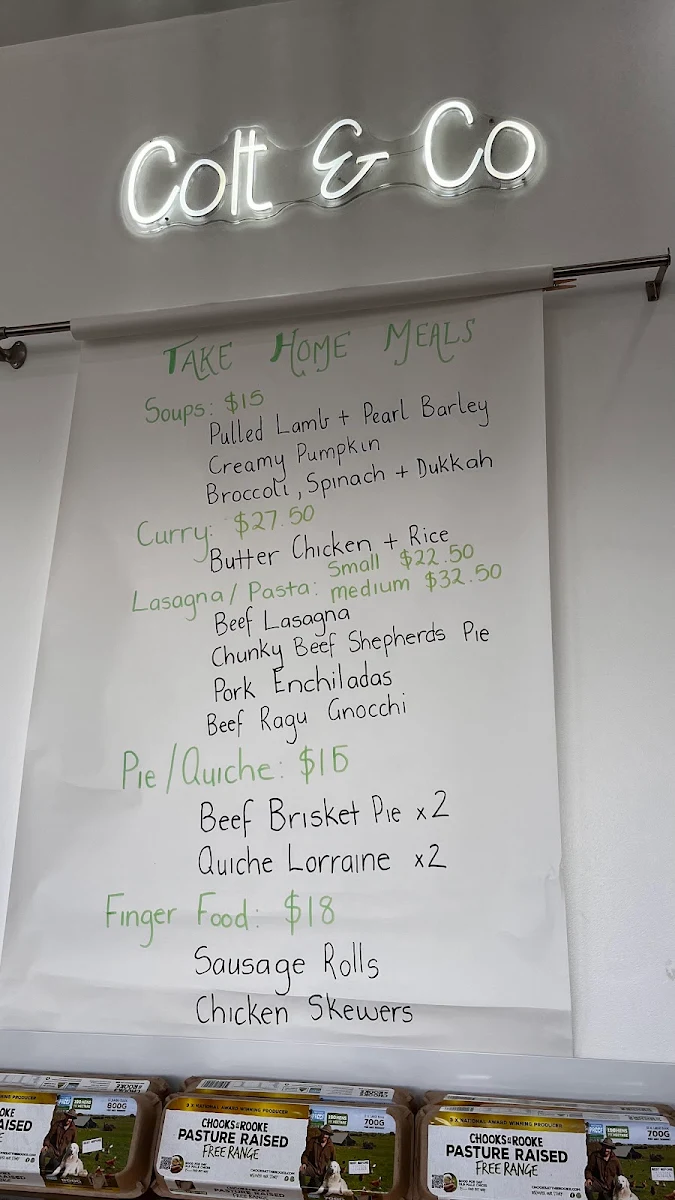 Colt & Co
TAKE HOME MEALS
Soups: $15
Pulled Lamb + Pearl Barley
Creamy Pumpkin
Broccoli, Spinach + Dukkah
Curry: $27.50
Butter Chicken + Rice
Lasagna / Pasta: Small $22.50
medium $32.50
Beef Lasagna
Chunky Beef Shepherds Pie
Pork Enchiladas
Beef Ragu Gnocchi
Pie/Quiche: $15
Beef Brisket Pie x2
Quiche Lorraine x2
Finger Food: $18
Sausage Rolls
Chicken Skewers
800G
CHOOKS & ROOKE
PASTURE RAISED
FREE RANGE
700G
CHOOKS & ROOKE
PASTURE RAISED
FREE RANGE
700G